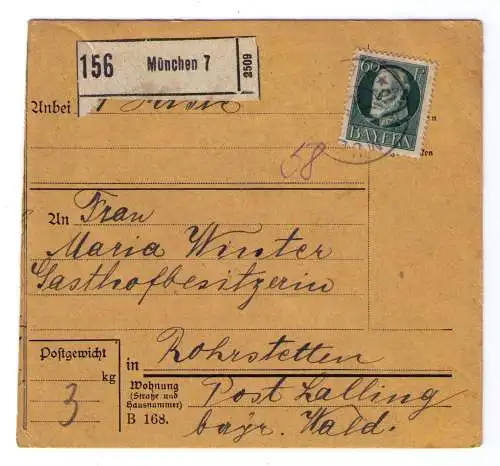 156 München 7 2509
60 Pf
BAYERN
Anbei 1
58
An Frau
Maria Winter
Gasthofbesitzerin
Postgewicht
kg
3
in Rohrstetten
Wohnung
(Straße und
Hausnummer)
Post Lalling
B 168.
bayr. Wald.